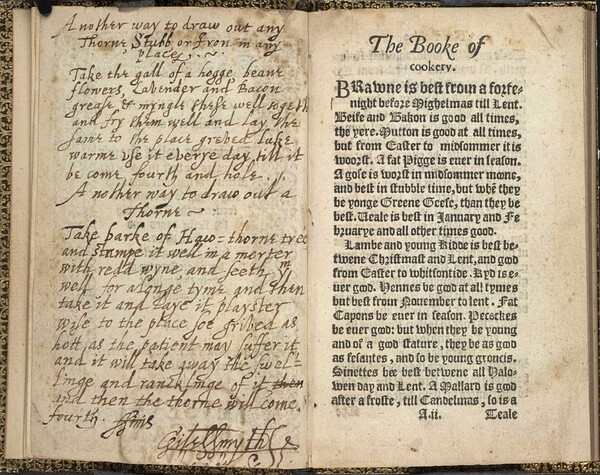 Another way to draw out any
Thorne Stubb or Iron in any
place,
Take the gall of a hogge, beane
flowers, Lavender and Bacon
grease & myngle these well togeth
and fry them well and lay the
same to the place greved luke
warme use it everye day, till it
be come fourth and hole.
Another way to draw out a
Thorne
Take barke of Haw=thorne tree
and stampe it well in a morter
with read wyne, and seeth
well for a longe tyme and then
take it and laye it playster
wise to the place soe grived as
hott as the patient may suffer it
and it will take away the swel=
linge and ranck linge of it then
and then the thorne will come
fourth. ffinis
The Booke of
cookery.
BRawne is best from a forte-
night before Mighelmas till Lent.
Beife and Bakon is good all times,
the yere. Mutton is good at all times,
but from Easter to midsommer it is
woorst. A fat Pigge is euer in season.
A gose is worst in midsommer moone,
and best in stubble time, but whē they
be yonge Greene Geese, than they be
best. Ueale is best in January and Fe
bruarye and all other times good.
Lambe and young Kidde is best be-
twene Christmast and Lent, and god
from Easter to whitsontide. Kyd is e-
uer god. Hennes be god at all tymes
but best from Nouember to lent. Fat
Capons be euer in season. Pecockes
be euer god: but when they be young
and of a god stature, they be as god
as fesantes, and so be young groncis.
Sinettes bee best betwene all Halo-
wen day and Lent. A Mallard is god
after a froste, till Candelmas, so is a
A.ii. Teale